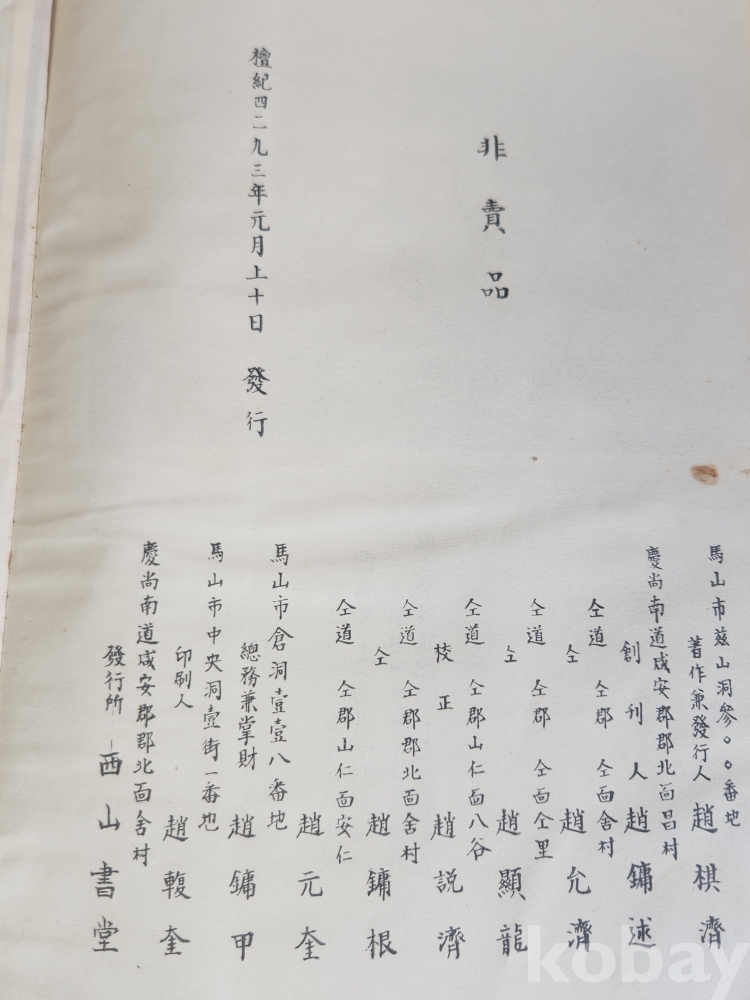 非賣品
檀紀四二九三年元月上十日 發行
馬山市玆山洞參○○番地
著作兼發行人 趙棋濟
慶尚南道咸安郡郡北面昌村
創刊人 趙鏞述
仝道 仝郡 仝面舍村
仝 趙允濟
仝道 仝郡 仝面仝里
仝 趙顯龍
仝道 仝郡山仁面八谷
校正 趙説濟
仝道 仝郡郡北面舍村
仝 趙鏞根
仝道 仝郡山仁面安仁
趙元奎
馬山市倉洞壹壹八番地
總務兼掌財 趙鏞甲
馬山市中央洞壹街一番地
印刷人 趙輹奎
慶尚南道咸安郡郡北面舍村
發行所 西山書堂
kobay